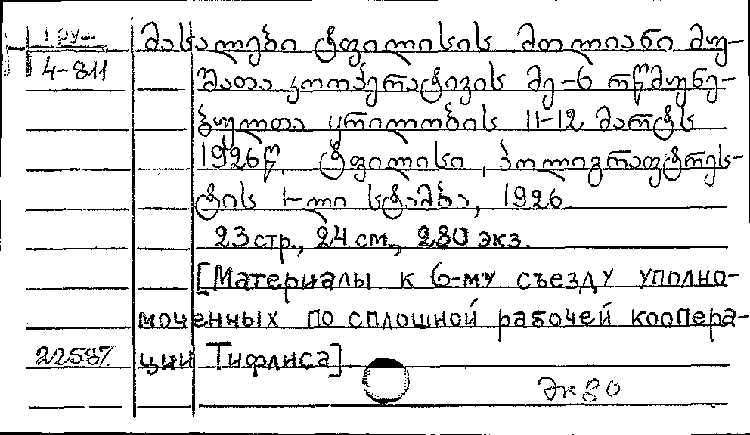 1 груз.
4-811
მასალები ტფილისის მთლიანი მუ-
შათა კოოპერატივის მე-6 რწმუნე-
ბულთა ყრილობის 11-12 მარტს
1926 წ. ტფილისი, პოლიგრაფტრეს-
ტის 1-ლი სტამბა, 1926.
23 стр., 24 см., 280 экз.
[Материалы к 6-му съезду уполно-
моченных по сплошной рабочей коопера-
ции Тифлиса].
22587
Эк80